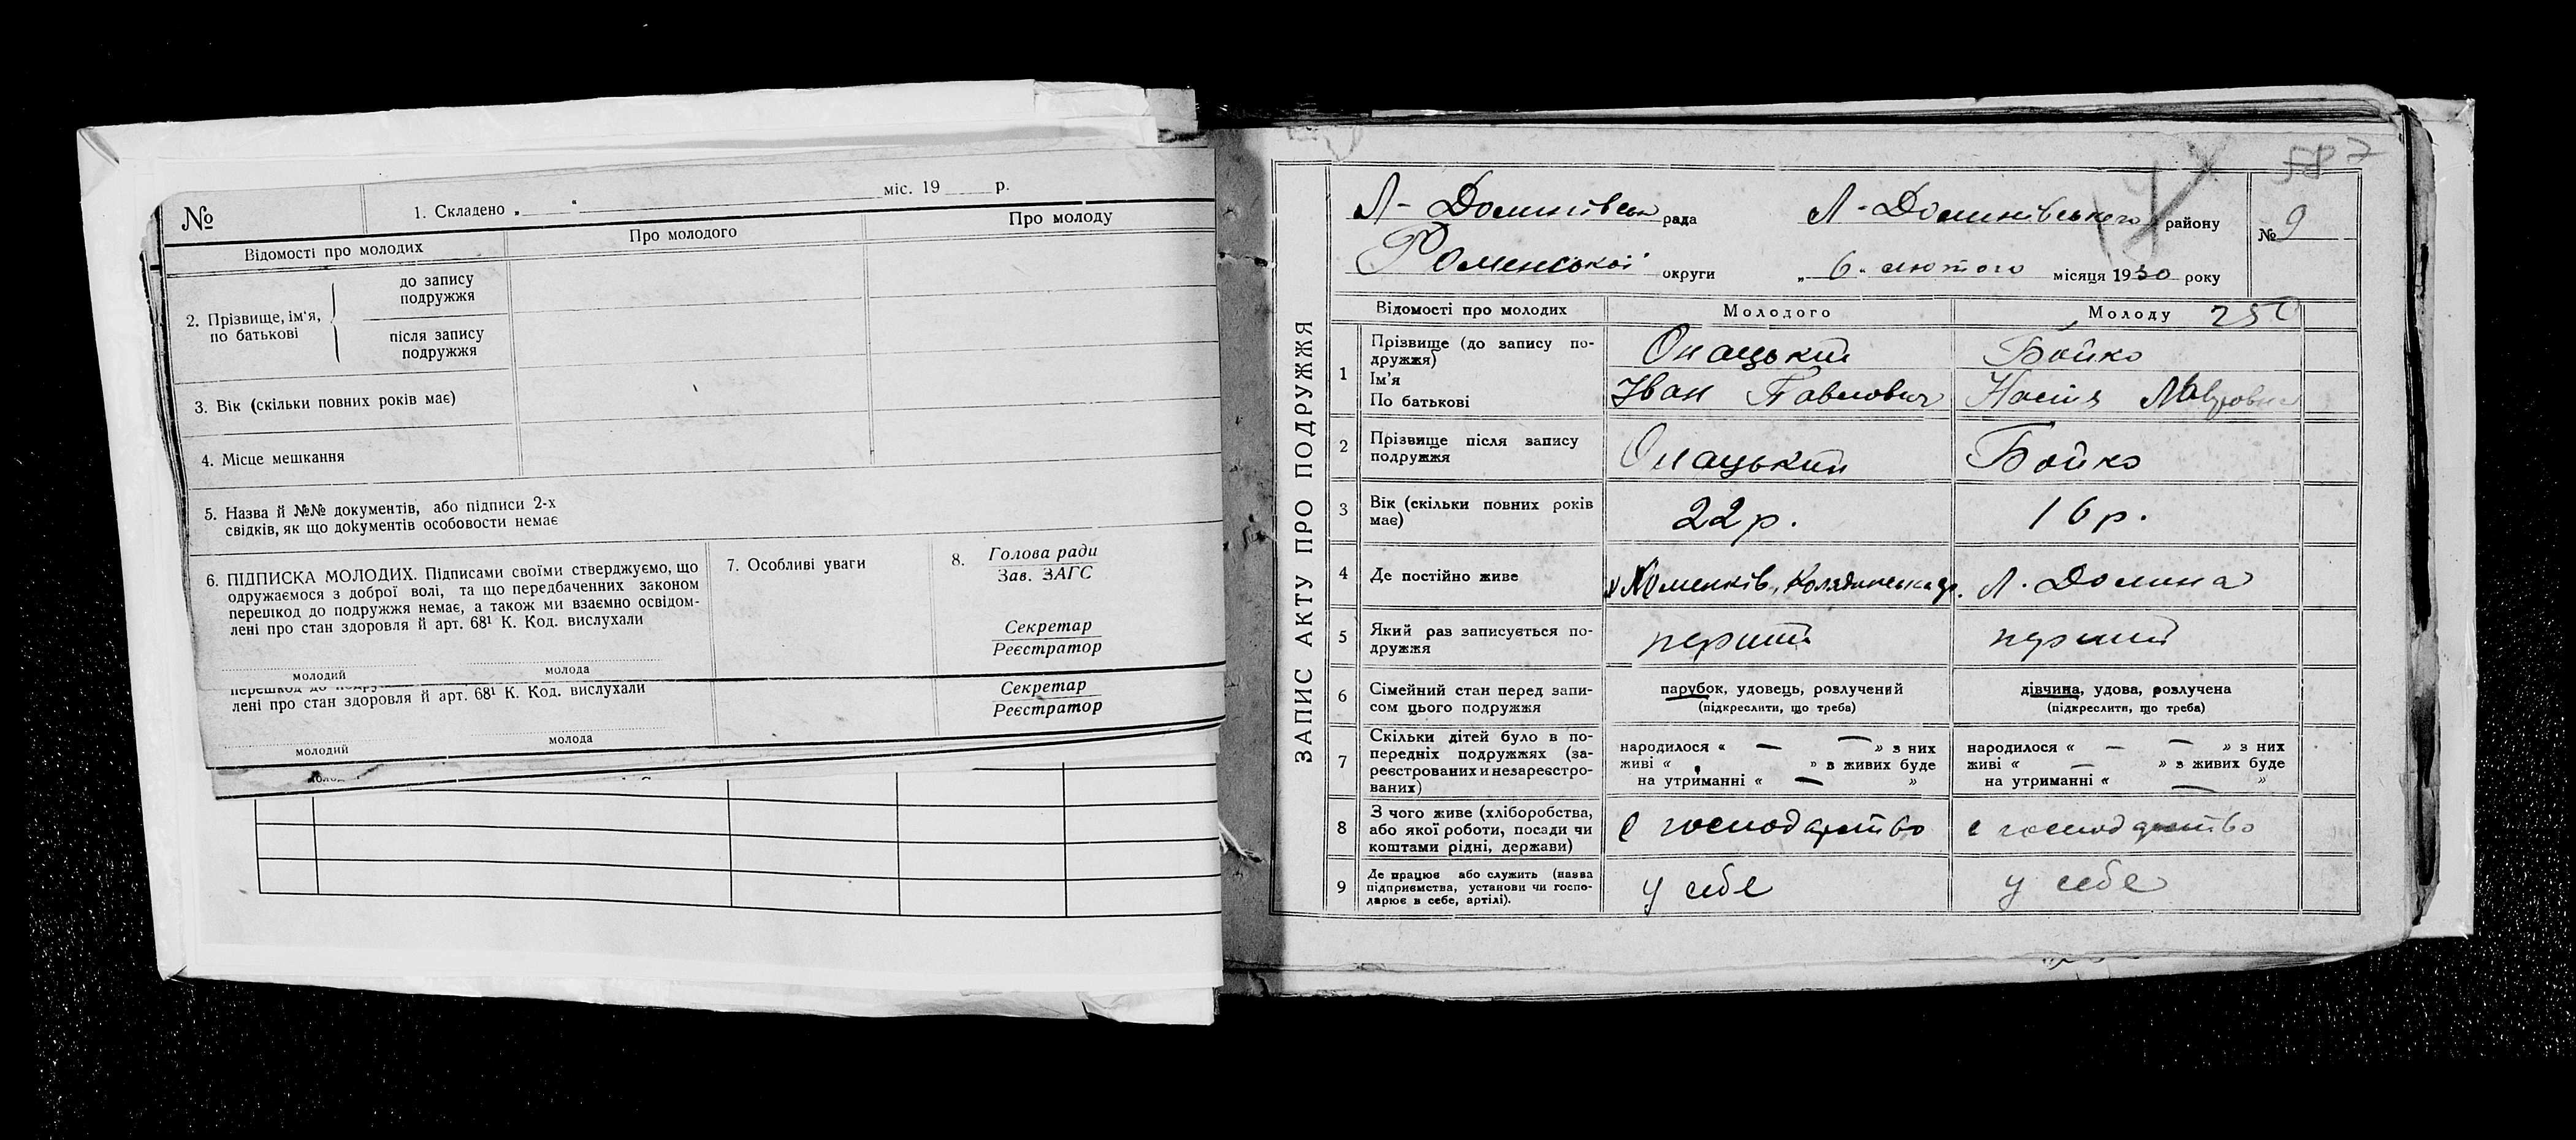 №
1. Складено „ “ міс. 19 р.
Відомості про молодих
Про молодого
Про молоду
2. Прізвище, ім'я,
по батькові
до запису
подружжя
після запису
подружжя
3. Вік (скільки повних років має)
4. Місце мешкання
5. Назва й №№ документів, або підписи 2-х
свідків, як що документів особовости немає
6. ПІДПИСКА МОЛОДИХ. Підписами своїми стверджуємо, що
одружаємося з доброї волі, та що передбаченних законом
перешкод до подружжя немає, а також ми взаємно освідом-
лені про стан здоровля й арт. 68¹ К. Код. вислухали
молодий
молода
7. Особливі уваги
8. Голова ради
Зав. ЗАГС
Секретар
Реєстратор
перешкод до
лені про стан здоровля й арт. 68¹ К. Код. вислухали
молодий
молода
Секретар
Реєстратор
ЗАПИС АКТУ ПРО ПОДРУЖЖЯ
Л-Долинівськ рада
Л-Долинівського району
№ 9
Роменської округи
„ 6 “ лютого місяця 1930 року
Відомості про молодих
Молодого
Молоду
1
Прізвище (до запису по-
дружжя)
Ім'я
По батькові
Онацький
Іван Павлович
Бойко
Настя
2
Прізвище після запису
подружжя
Онацький
Бойко
3
Вік (скільки повних років
має)
22 р.
16 р.
4
Де постійно живе
Л. Долина
5
Який раз записується по-
дружжя
перший
перший
6
Сімейний стан перед запи-
сом цього подружжя
парубок, удовець, розлучений
(підкреслити, що треба)
дівчина, удова, розлучена
(підкреслити, що треба)
7
Скільки дітей було в по-
передніх подружжях (за-
реєстрованих и незареєстро-
ваних)
народилося « — — » з них
живі « » з живих буде
на утриманні « — »
народилося « — — » з них
живі « — » з живих буде
на утриманні « — »
8
З чого живе (хліборобства,
або якої роботи, посади чи
коштами рідні, держави)
с господарство
с господарство
9
Де працює або служить (назва
підприємства, установи чи госпо-
дарює в себе, артілі).
у себе
у себе